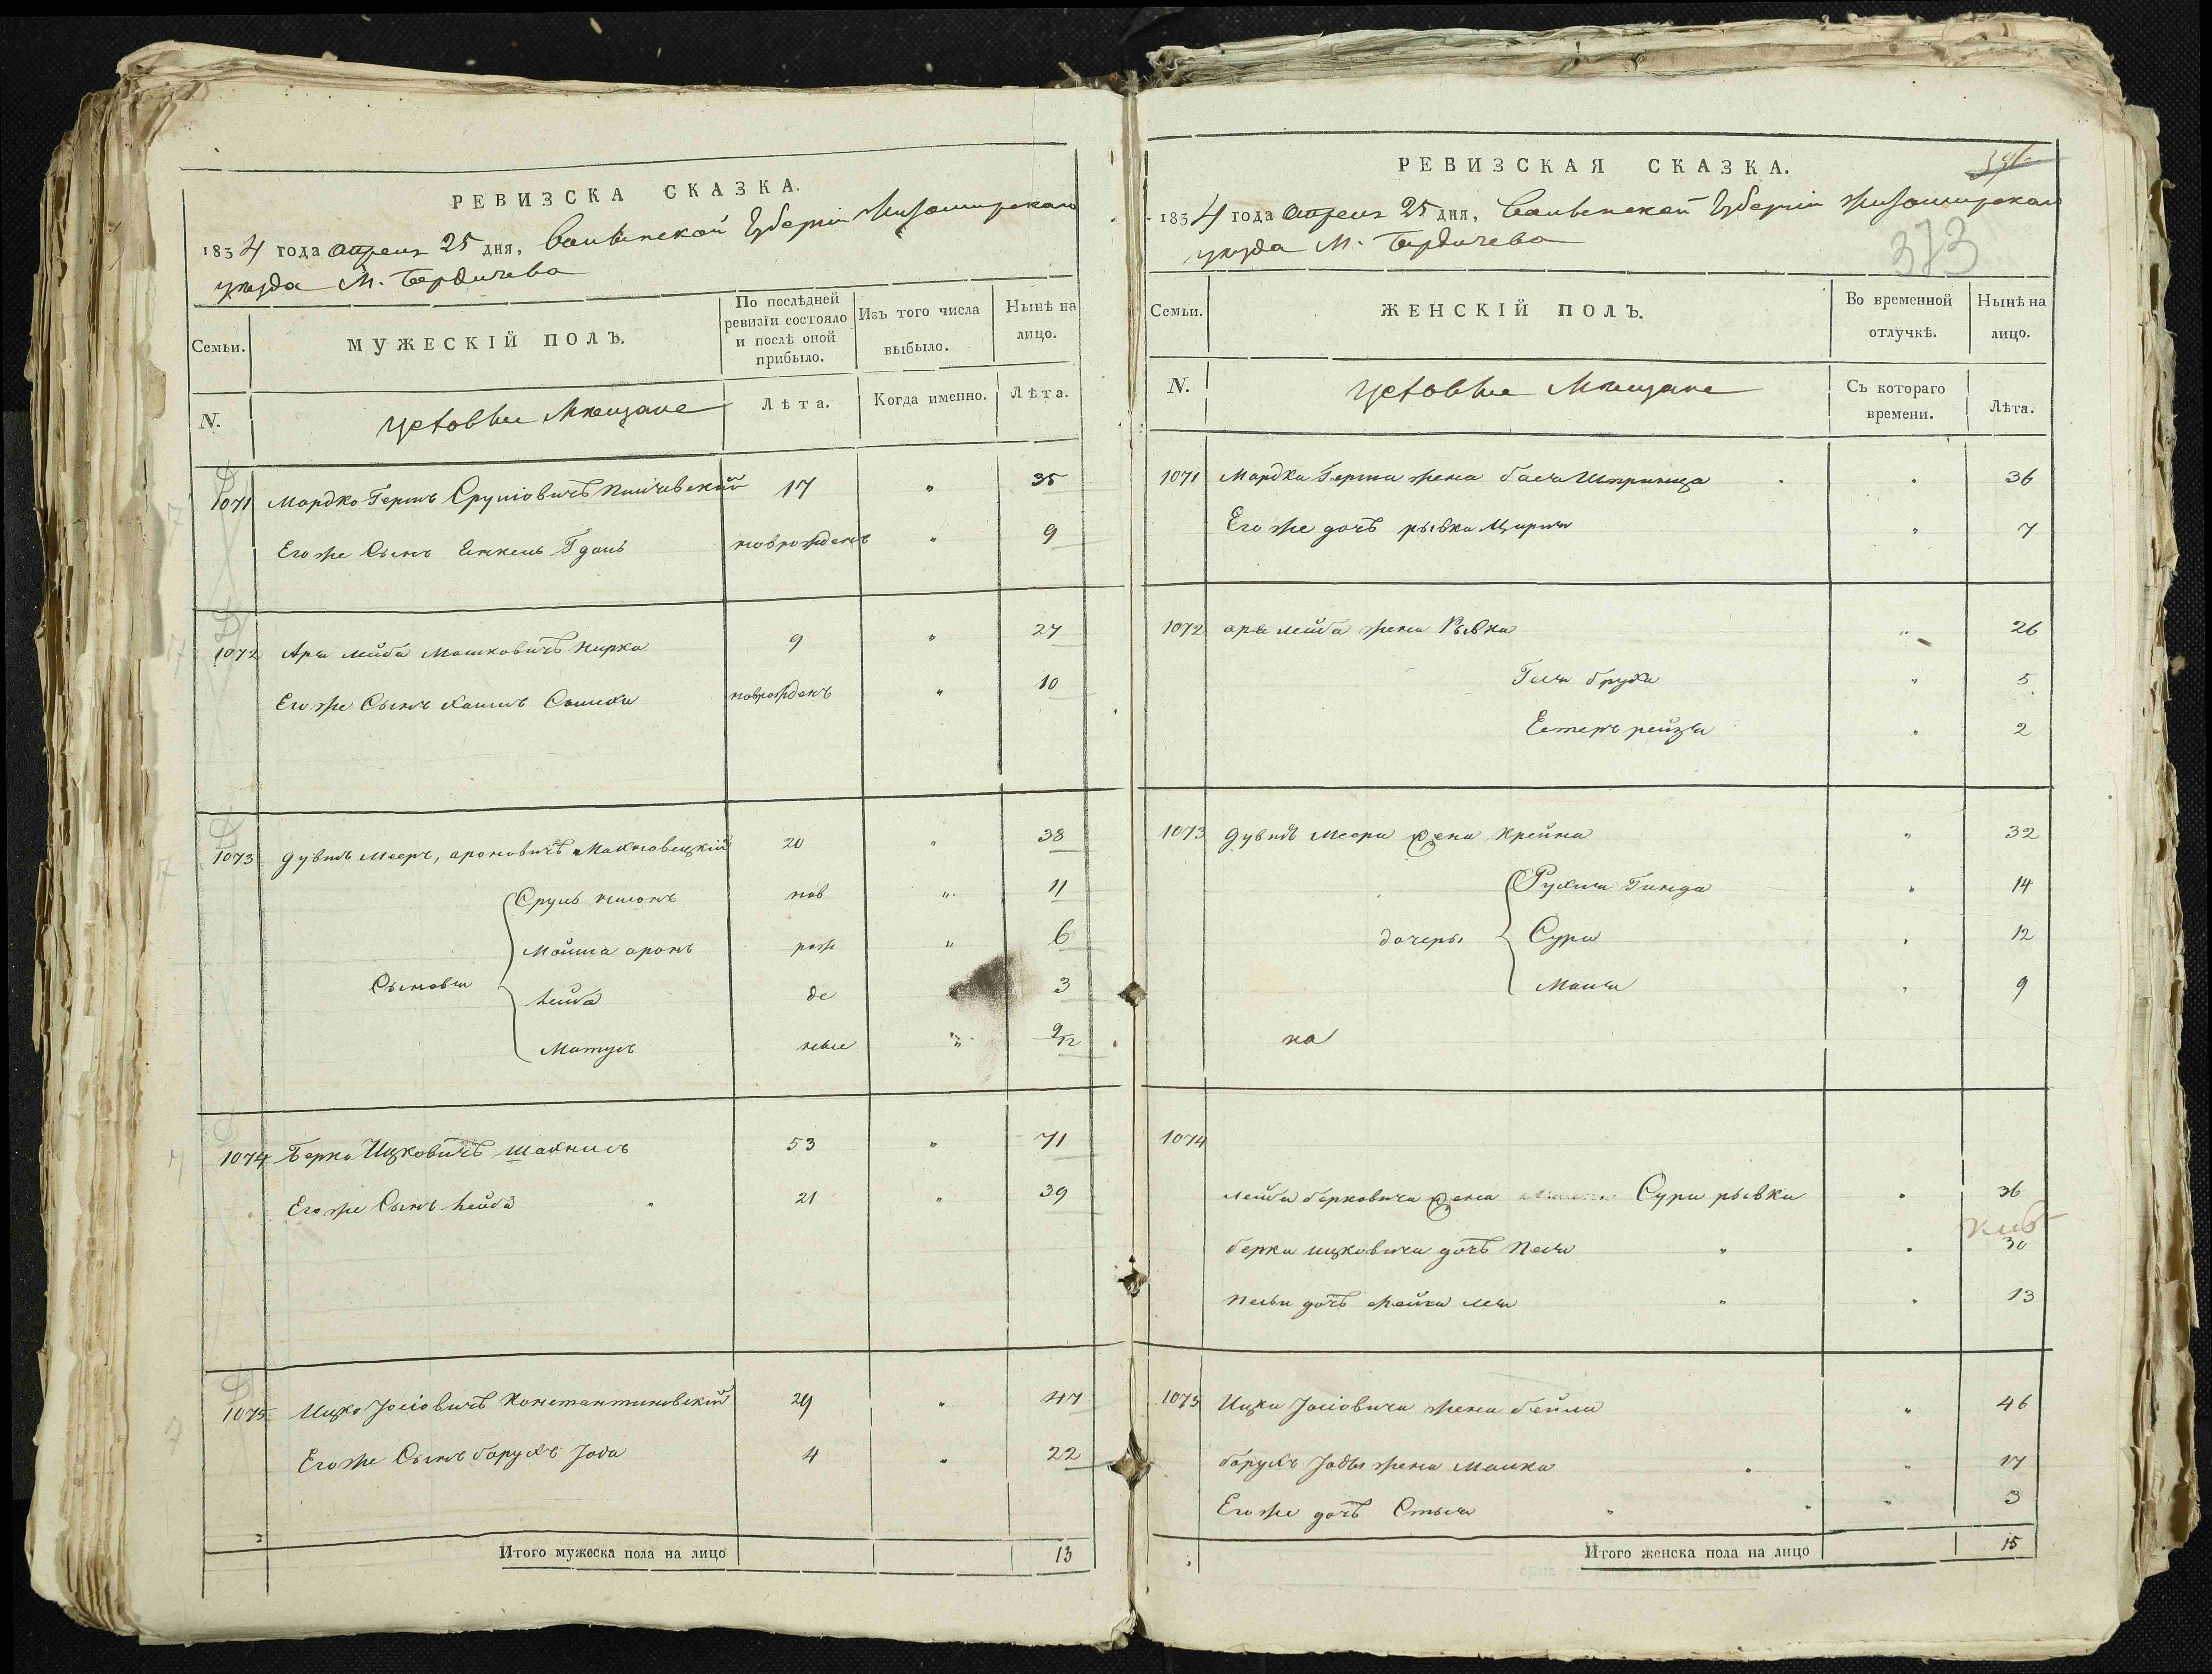 РЕВИЗСКА СКАЗКА.
1834 года апреля 25 дня, Волынской Губернии Житомирскаго
уезда М. Бердичева
Семьи.
МУЖЕСКІЙ ПОЛЪ.
По послѣдней
ревизіи состояло
и послѣ оной
прибыло.
Изъ того числа
выбыло.
Нынѣ на
лицо.
N.
Мещане
Лѣта.
Когда именно.
Лѣта.
1071 Мордко Герш Сруліовичъ 17 " 35
Его же Сынъ Гдаль новрожденъ " 9
1072 Арья лейба Мошковичъ Нирка 9 " 27
Его же Сынъ новрожденъ " 10
1073 дувидъ Мееръ, ароновичъ Махновецкій 20 " 38
Сруль нов " 11
Мойша аронъ рож " 6
Сыновья лейба де 3
Мотусъ ные " 9/12
1074 Берко Ицковичъ 53 " 71
Его же Сынъ лейба " 21 " 39
1075 Ицко Іосіовичъ Константиновскій 29 " 47
Его же Сынъ борухъ Іода 4 " 22
Итого мужеска пола на лицо 13
РЕВИЗСКАЯ СКАЗКА.
1834 года апреля 25 дня, Волынской Губерніи Житомирскаго
уезда М. Бердичева
373
Семьи.
ЖЕНСКІЙ ПОЛЪ.
Во временной
отлучкѣ.
Нынѣ на
лицо.
N.
Мещане
Съ котораго
времени.
Лѣта.
1071 Мордка Герша жена бася Шпринца " 36
Его же дочь рывка Цирля " 7
1072 арья лейба жена Рывка " 26
Геля бруха " 5
Естеръ рейзя " 2
1073 дувидъ Меера жена Крейна " 32
Рухля Гинда " 14
дочеры Сура " 12
Маля " 9
на
1074
лейба берковича жена Сура рывка " 36
берка ицковича дочъ Песя " " 30
Песьи дочъ лея " " 13
1075 Ицка Іосіовича жена бейла " 46
борухъ Іоды жена Малка " " 17
Его же дочъ Стыся " " " 3
Итого женска пола на лицо 15